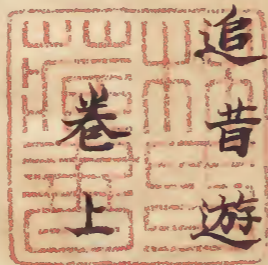 追昔遊
卷上